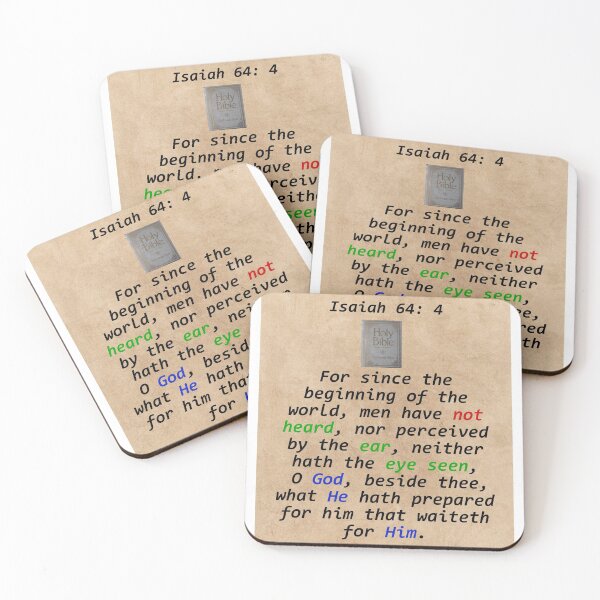 Isaiah 64: 4
Holy
Bible
For since the
beginning of the
world, have
Isaiah 64: 4
Holy
Bible
For since the
beginning of the
world, men have not
heard, nor perceived
by the ear, neither
hath the eye seen,
Isaiah 64: 4
Holy
Bible
For since the
beginning of the
world, men have not
heard, nor perceived
by the ear,
hath the eye
O God, beside
what He hath
for him
for
Isaiah 64: 4
Holy
Bible
For since the
beginning of the
world, men have not
heard, nor perceived
by the ear, neither
hath the eye seen,
O God, beside thee,
what He hath prepared
for him that waiteth
for Him.